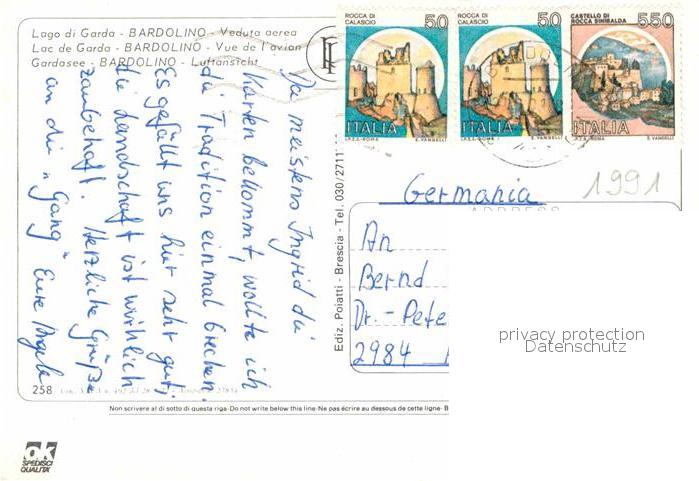 Lago di Garda - BARDOLINO - Veduta aerea
Lac de Garda - BARDOLINO - Vue de l'avion
Gardasee - BARDOLINO - Luftansicht
Da meistens Ingrid die
Karten bekommt, wollte ich
die Tradition einmal brechen.
Es gefällt uns hier sehr gut,
die Landschaft ist wirklich
zauberhaft. Herzliche Grüße
an die "Gang" Eure Angela
258
Ediz. Poiatti - Brescia - Tel. 030/2711
ROCCA DI
CALASCIO
50
ITALIA
I.P.Z.S.-ROMA E. VANGELLI
ROCCA DI
CALASCIO
50
ITALIA
I.P.Z.S.-ROMA E. VANGELLI
CASTELLO DI
ROCCA SINIBALDA
550
ITALIA
I.P.Z.S.-ROMA E. VANGELLI
Germania
1991
An
Bernd
Dr.-Pete
2984
privacy protection
Datenschutz
Non scrivere al di sotto di questa riga-Do not write below this line-Ne pas écrire au dessous de cette ligne-B
ok
SPEDISCI
QUALITA'